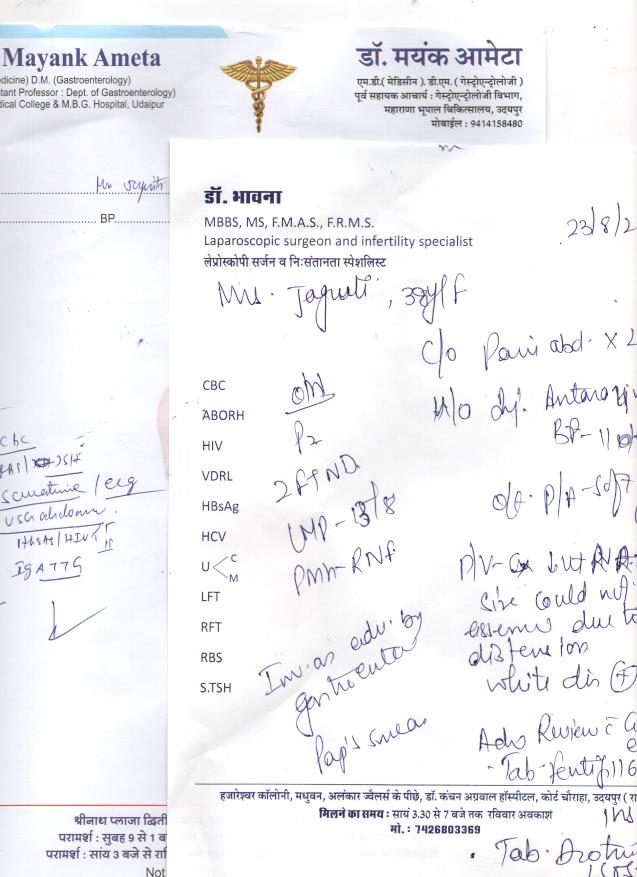 Mayank Ameta
डॉ. मयंक आमेटा
edicine) D.M. (Gastroenterology)
tant Professor : Dept. of Gastroenterology)
dical College & M.B.G. Hospital, Udaipur
एम.डी.( मेडिसीन ). डी.एम. ( गेस्ट्रोएन्ट्रोलोजी )
पूर्व सहायक आचार्य : गेस्ट्रोएन्ट्रोलोजी विभाग,
महाराणा भूपाल चिकित्सालय, उदयपुर
मोबाईल : 9414158480
BP
CBC
USG abdomen
IGA TTG
डॉ. भावना
MBBS, MS, F.M.A.S., F.R.M.S.
Laparoscopic surgeon and infertility specialist
लेप्रोस्कोपी सर्जन व निःसंतानता स्पेशलिस्ट
23/8/2
Mrs. Jagruti, 38y/F
c/o Pain abd. x 2
CBC
ABORH
HIV
VDRL
HBsAg
HCV
U C
M
LFT
RFT
RBS
S.TSH
P2
2FTND
LMP-13/8
PMH-RNF
Inv. as adv. by
gastroenter
Pap's smear
BP-110/
o/e. P/A-Soft
P/V-Cx
size could not
due to
distension
white dis (+)
Adv Review c
हजारेश्वर कॉलोनी, मधुवन, अलंकार ज्वैलर्स के पीछे, डॉ. कंचन अग्रवाल हॉस्पीटल, कोर्ट चौराहा, उदयपुर ( रा
मिलने का समय : सायं 3.30 से 7 बजे तक रविवार अवकाश
मो. : 7426803369
Tab.
श्रीनाथ प्लाजा द्विती
परामर्श : सुबह 9 से 1 ब
परामर्श : सांय 3 बजे से रा
Not